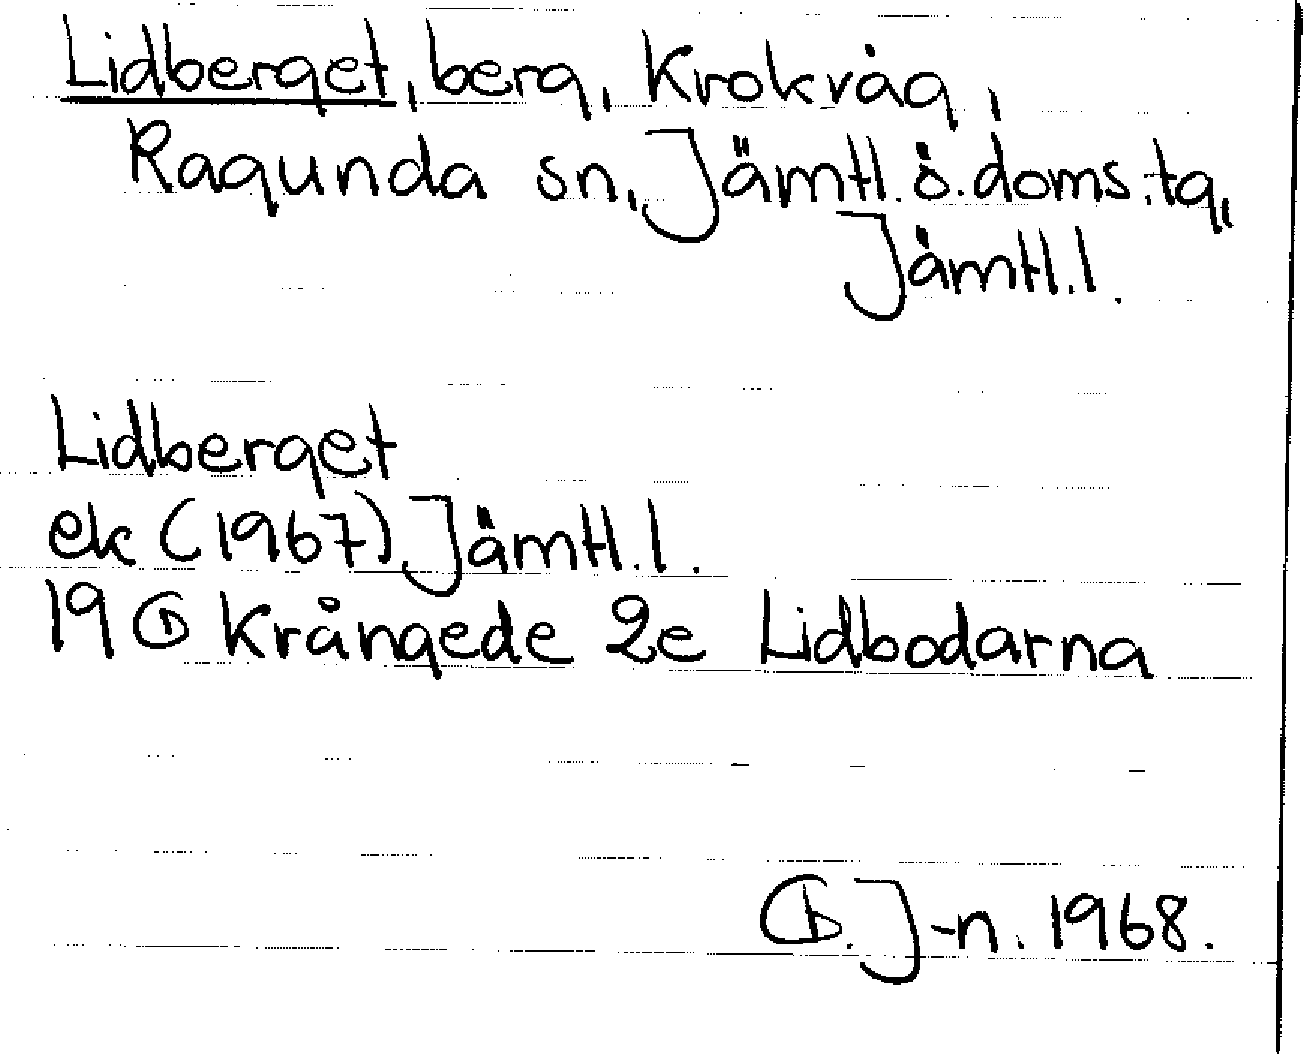 Lidberget, berg, Krokvåg,
Ragunda sn, Jämtl. ö. doms. tg,
Jämtl. l.
Lidberget
ek (1967) Jämtl. l.
19 Krångede 2e Lidbodarna
B. J-n. 1968.